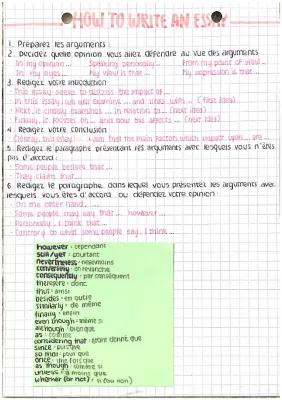 HOW TO WRITE AN ESSAY
1. Préparez les arguments :
2. Décidez quelle opinion vous allez défendre au vue des arguments
In my opinion... Speaking personally... From my point of view...
In my eyes... My view is that... My impression is that...
3. Redigez votre introduction
- This essay seeks to discuss the impact of...
- In this essay, we will examine ... and links with ... (first idea)
- Next, it closely examines ... in relation to ... (next idea)
- Finally, it focuses on ... and how this affects ... (next idea)
4. Redigez votre conclusion
- Clearly, this essay the main factors which impact upon ... are ...
5. Redigez le paragraphe présentant les arguments avec lesquels vous n'êtes
pas d'accord :
- Some people believe that ...
- They claim that ...
6. Redigez le paragraphe dans lequel vous présentez les arguments avec
lesquels vous êtes d'accord ou défendez votre opinion :
- On the other hand, ...
- Some people may say that ... however ...
- Personally, I think that ...
- Contrary to what some people say, I think ...
however : cependant
still/yet : pourtant
nevertheless : néanmoins
conversely : en revanche
consequently : par conséquent
therefore : donc
thus : ainsi
besides : en outre
similarly : de même
finally : enfin
even though : même si
although : bien que
as : comme
considering that : étant donné que
since : puisque
so that : pour que
once : une fois que
as though : comme si
unless : à moins que
whether (or not) : si (ou non)